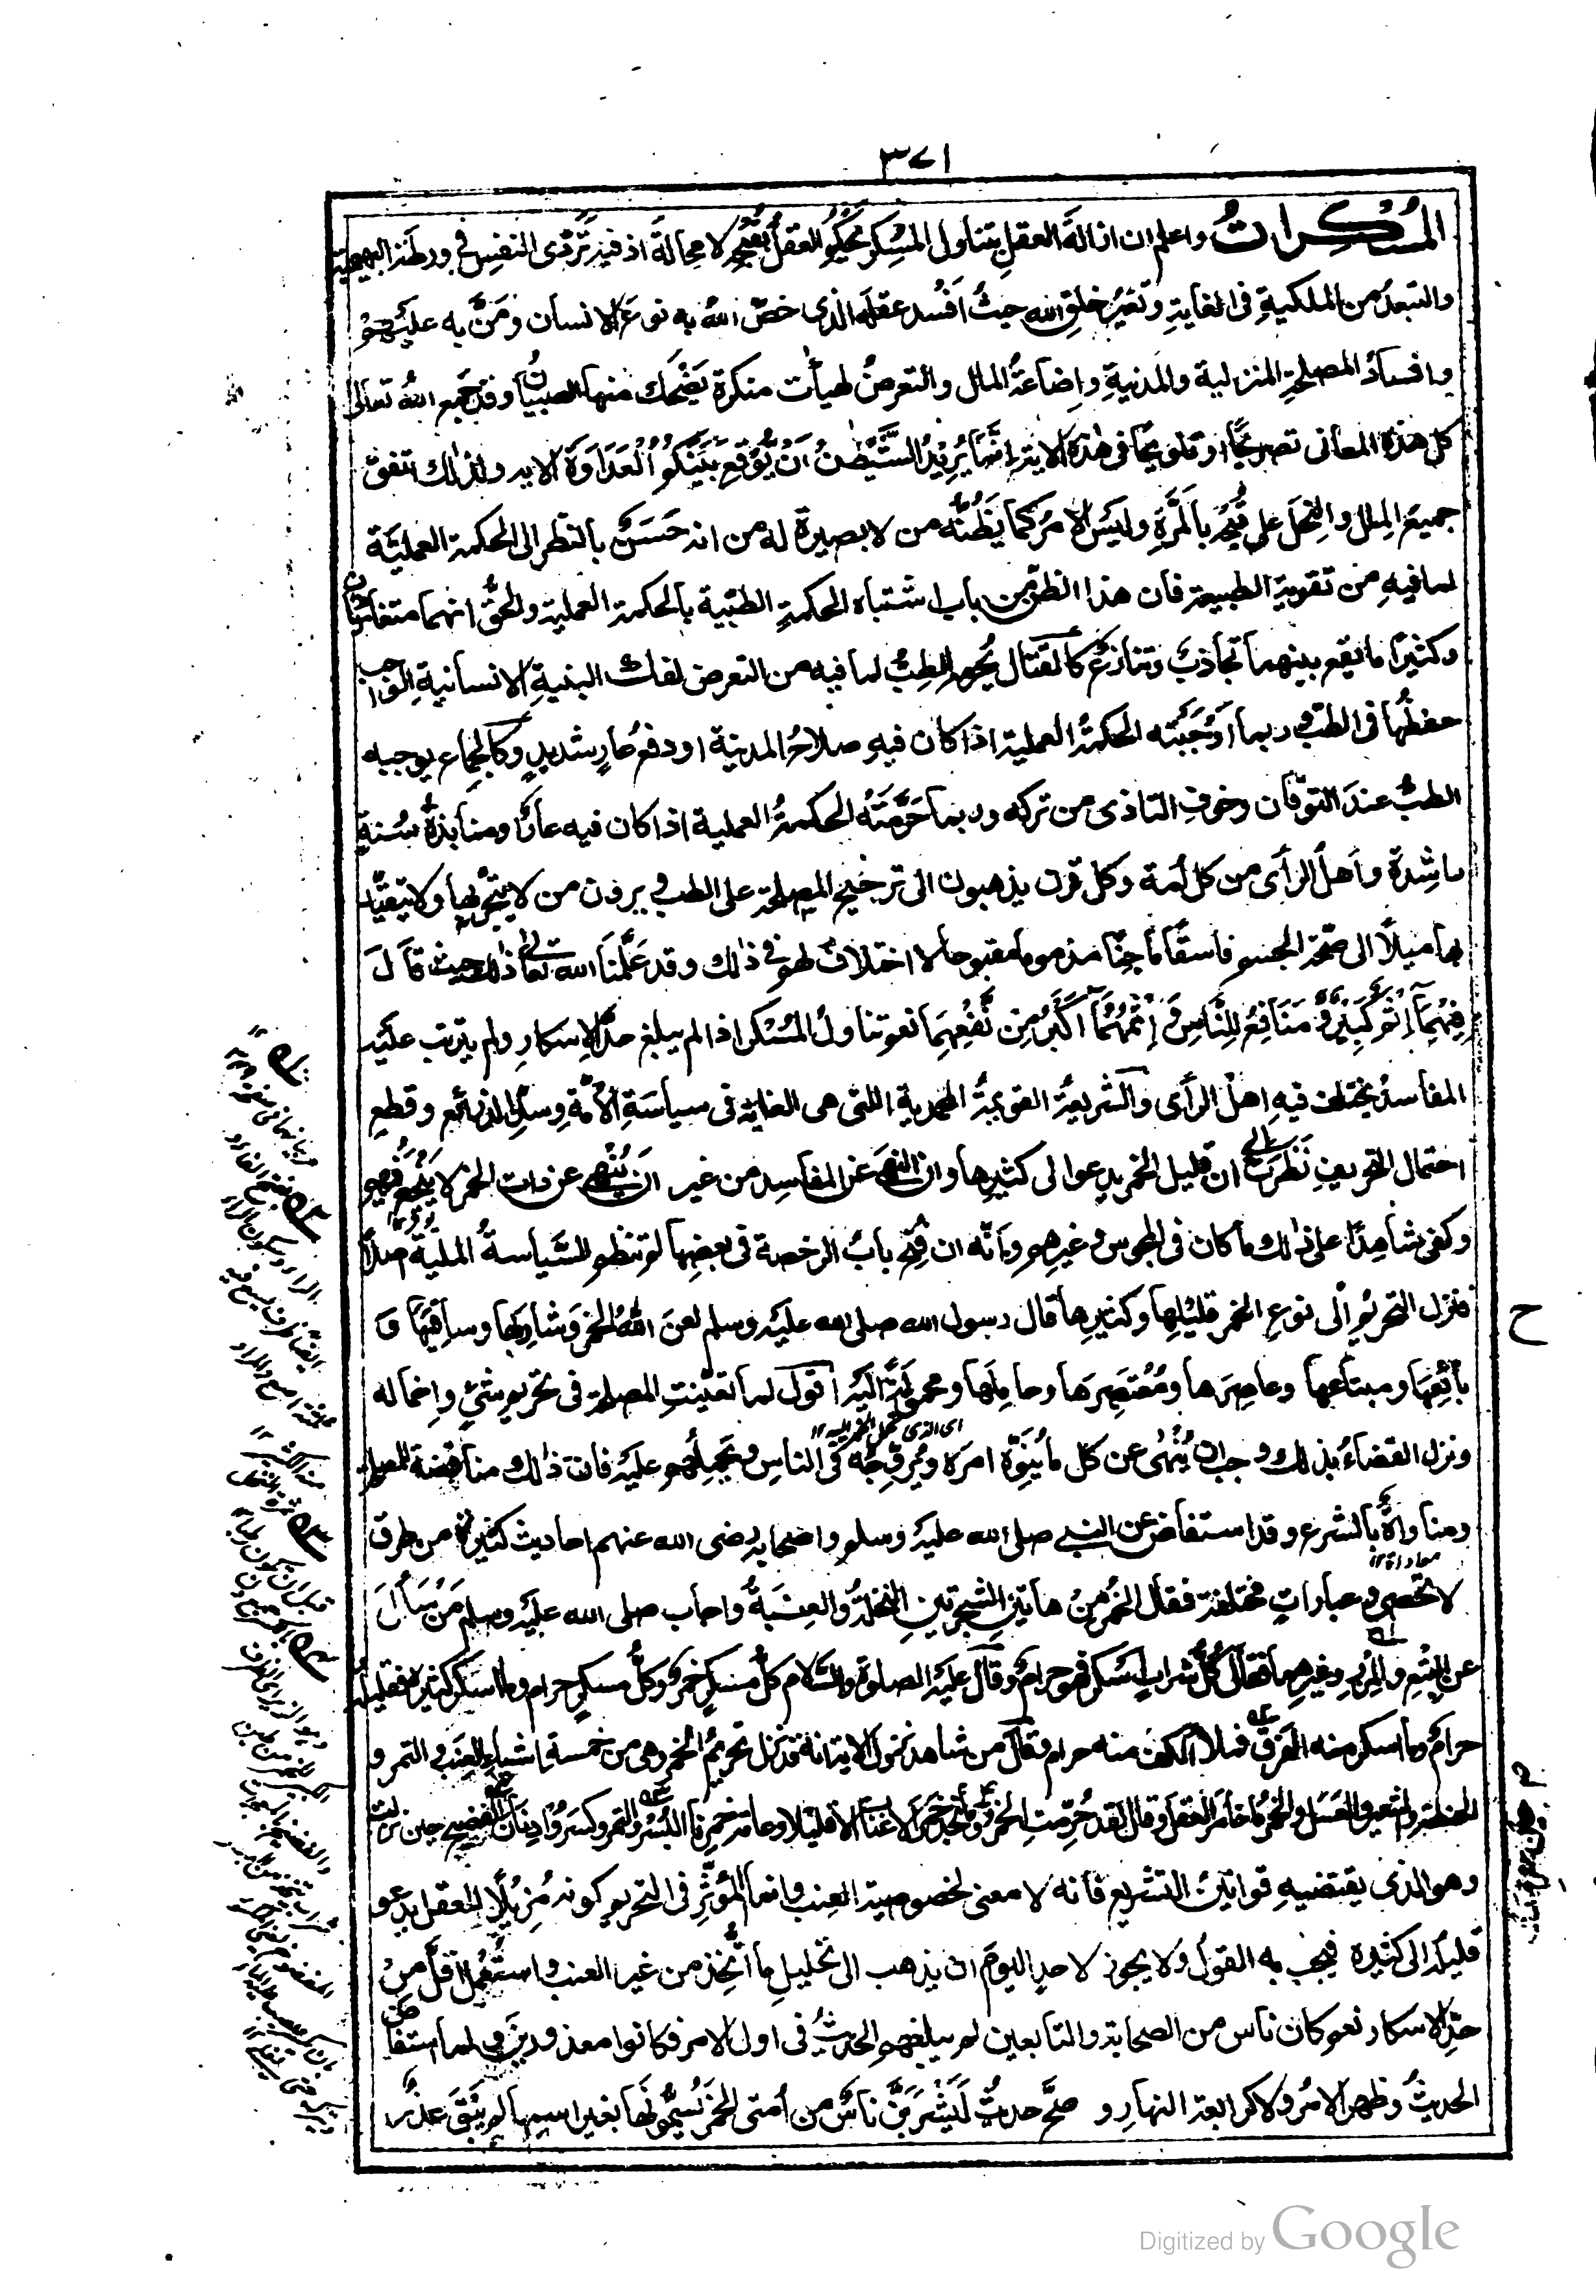 ٣٧١
المُسْكِراتُ واعلم ان ازالةَ العقلِ بتناول المُسْكِر يَحْكُمُ العقلُ بقُبْحِه لا محالةَ اذ فيه تَرَدِّى النفسِ فى ورطة البهيمية
والتبعدُ من الملكيةِ فى الغايةِ وتغييرُ خلقِ الله حيثُ اَفْسد عقلَه الذى خصّ اللهُ به نوعَ الانسان ومَنَّ به عليهم
وافسادُ المصلحةِ المنزلية والمدنيةِ واِضاعةُ المال والتعرضُ لهيأت منكرة يَضْحَك منها الصبيانُ وقد جَمع اللهُ تعالىٰ
كل هذه المعانى تصريحًا او تلويحًا فى هٰذه الاية اِنَّمَا يُرِيْدُ الشَّيْطٰنُ اَنْ يُّوْقِعَ بَيْنَكُمُ الْعَدَاوَةَ الاية ولذٰلك اتفق
جميعُ المِلل والنِحَل على قُبْحِه بالمَرَّةِ وليسَ الامرُ كما يَظُنُّه من لا بصيرة له من انه حَسَنٌ بالنظر الى الحكمة العمليَّة
لما فيهِ من تقوية الطبيعة فان هذا الظنَّ من باب اشتباه الحكمةِ الطبّية بالحكمة العملية والحقُّ انهما متغايرتان
وكثيرًا ما يقع بينهما تجاذبٌ وتنازعٌ كالقتال يُحرِّمه الطبُّ لما فيه من التعرض لفك البنيةِ الانسانيةِ الواجب
حفظُها فى الطب وربما اَوْجَبَتْه الحكمةُ العملية اذا كان فيهِ صلاحُ المدنية او دفعُ عارٍ شديدٍ وكالجماع يوجبه
الطبُّ عندَ التوَقان وخوفِ التاذى من تركه وربما حَرَّمَتْهُ الحكمةُ العملية اذا كان فيه عارٌ او منابذةُ سُنةٍ
راشدة واَهلُ الرأى من كل اُمة وكل قرن يذهبون الى ترجيح المصلحة على الطب ويرون من لا يتحرّٰها ولا يتقيّد
بها ميلًا الى صحّة الجسم فاسقًا ماجنًا مذموما مقبوحا لا اختلافَ لهم فى ذٰلك وقد عَلَّمنَا الله تعالىٰ ذٰلك حيث قَالَ
فِيْهِمَآ اِثْمٌ كَبِيْرٌ وَّ مَنَافِعُ لِلنَّاسِ وَ اِثْمُهُمَآ اَكْبَرُ مِنْ نَّفْعِهِمَا نعم تناولُ المُسْكر اذا لم يبلغ حدَّ الاِسكارِ ولم يترتب عليه
المفاسدُ يختلف فيهِ اهلُ الرأى والشريعةُ القويمةُ المحمدية التى هى الغايةُ فى سياسَةِ الاُمّةِ وسدِّ الذرائع وقطعِ
احتمال التحريفِ نَظَرَت الى ان قليل الخمر يدعوا لى كثيرها وان النهىَ عن المفاسد من غير ان يُنْهىٰ عن ذات الخمر لا ينجع فيهم
وكفىٰ شاهِدًا على ذٰلك ما كان فى المجوس وغيرهم وانّه ان فُتِحَ بابُ الرخصة فى بعضها لم تنتظم السَّياسةُ الملية اصلًا
فنزل التحريمُ الٰى نوعِ الخمر قليلِها وكثيرِها قال رسول الله صلى الله عليه وسلم لعنَ اللهُ الخمرَ وشاربَها وساقيَها وَ
بائِعَها ومبتاعَها وعاصِرَها ومُعْتَصِرَها وحامِلَها ومحمولةً اليه اقول لما تعيّنتِ المصلحة فى تحريم شئٍ واِخماله
اى الذى يحمل الخمر اليه ١٢
ونزل القضاءُ بذلك وجب ان يُنْهٰى عن كل ما يُنَوِّه امرَه ويُروِّجُه فى الناس ويحمِلُهم عليه فان ذٰلك مناقضة للمصلحة
ومناواةٌ بالشرع وقد استفاض عن النبى صلى الله عليه وسلم واصحابه رضى الله عنهم احاديث كثيرة من طرق
معاداة ١٢
لا تحصىٰ وعباراتٍ مختلفة فقال الخمرُ من هاتين الشجرتينِ النخلةُ والعِنَبةُ واجاب صلى الله عليه وسلم مَنْ سَأَلَ
عن البِتْعِ والمِزْرِ وغيرهما فقال كلُّ شرابٍ اَسْكر فهو حرامٌ وقال عليه الصلوة والسّلام كلُّ مسكرٍ خمرٌ وكلُّ مسكرٍ حرام وما اسكر كثيره فقليله
حرامٌ وما اسكر منه الفَرَقُ فملأ الكفِّ منه حرام وقال من شاهد نزول الاية انه قد نزل تحريمُ الخمر وهى من خمسة اشياء العنب والتمر و
الحنطة والشعير والعَسَل والخمرُ ما خامَرَ العقلَ وقال لقد حُرِّمتِ الخمرُ وما نجد خمرَ الاعناب الا قليلًا وعامة خمرنا البُسْرُ والتمر وكسَرُوْا دِنانَ الفضيخ حين نزلت
وهو الذى يقتضيهِ قوانينُ التشريع فانه لا معنى لخصوصية العِنب وانما المُؤَثّرُ فى التحريم كونه مُزِيْلًا للعقل يدعو
قليلُه الى كثيرة فيجب به القولُ ولا يجوز لاحدٍ اليومَ ان يذهب الى تحليلِ ما اتُّخِذ من غير العنب واستُعْمِل اقلَّ مِنْ
حدّ الاسكار نعم كان ناس من الصحابة والتابعين لم يبلغهم الحديثُ فى اول الامر فكانوا معذورين ولما استفاض
الحديثُ وظهر الامرُ ولا كرابعة النهارِ و صحَّ حديثُ لَيَشْرَبَنَّ ناسٌ من اُمتى الخمرَ يُسَمُّونَها بغير اسمها لم يَبْقَ عذرٌ
ح
Digitized by Google